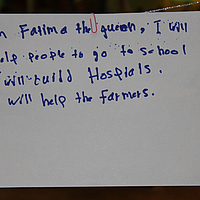 n Fatima the queen, I will
elp people to go to school
will build Hospials.
will help the farmers.